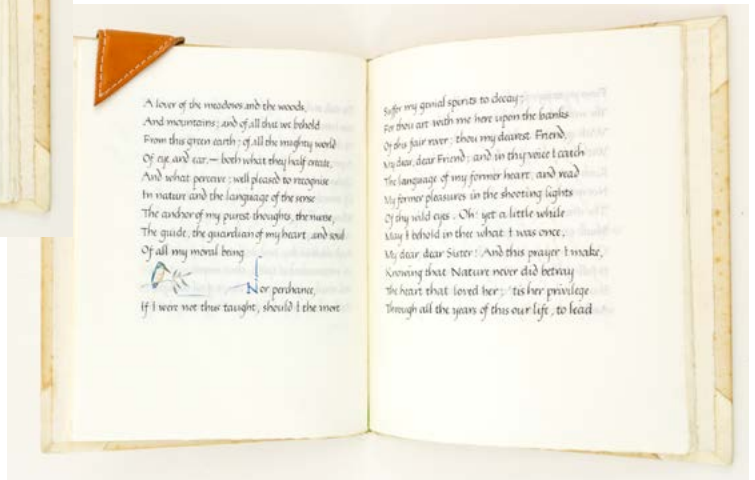 A lover of the meadows and the woods,
And mountains; and of all that we behold
From this green earth; of all the mighty world
Of eye and ear,— both what they half create,
And what perceive; well pleased to recognise
In nature and the language of the sense
The anchor of my purest thoughts, the nurse,
The guide, the guardian of my heart, and soul
Of all my moral being.
Nor perchance,
If I were not thus taught, should I the more
Suffer my genial spirits to decay:
For thou art with me here upon the banks
Of this fair river; thou my dearest Friend,
My dear, dear Friend; and in thy voice I catch
The language of my former heart, and read
My former pleasures in the shooting lights
Of thy wild eyes. Oh! yet a little while
May I behold in thee what I was once,
My dear dear Sister! And this prayer I make,
Knowing that Nature never did betray
The heart that loved her; 'tis her privilege
Through all the years of this our life, to lead